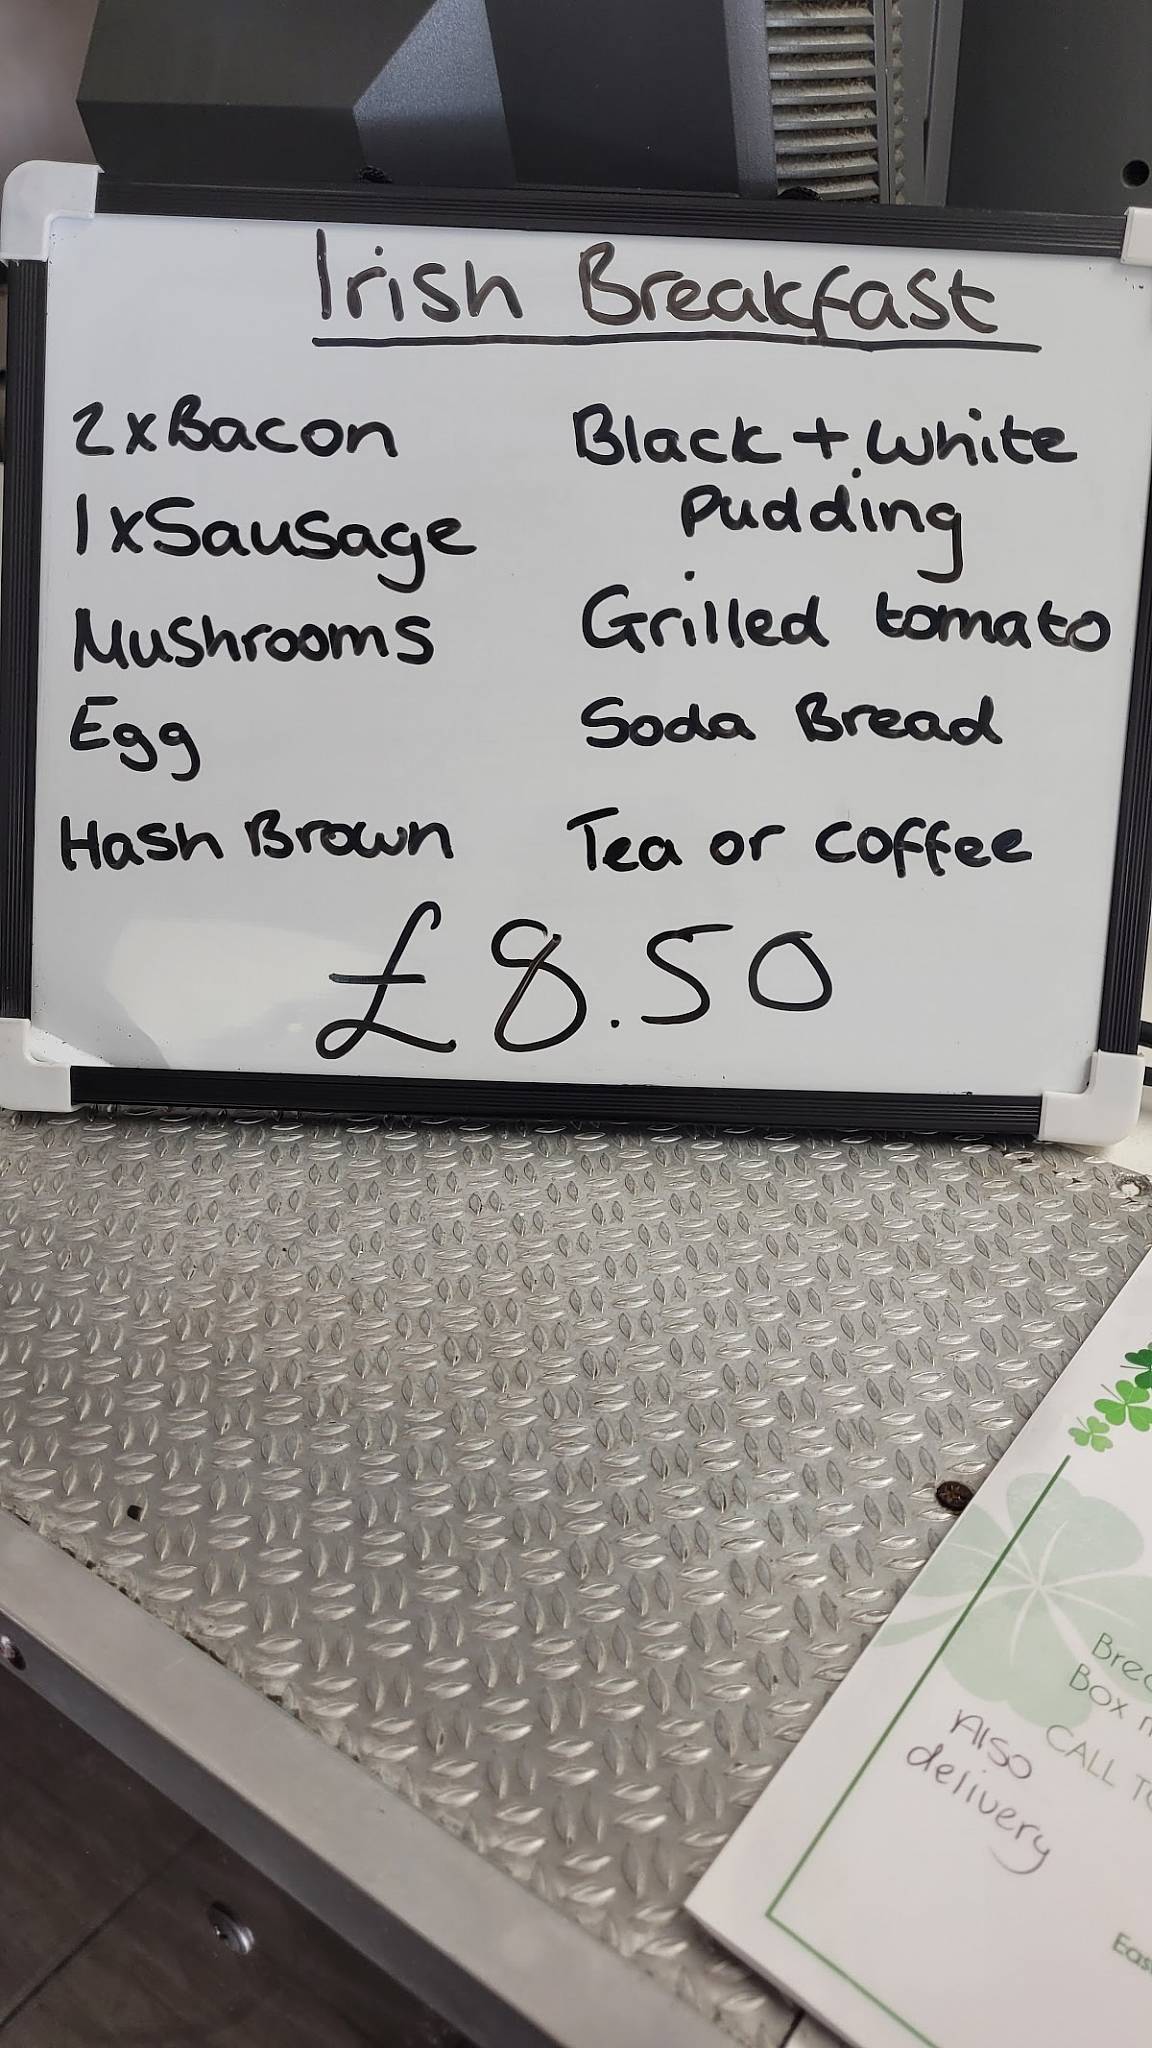 Irish Breakfast
2xBacon
1xSausage
Mushrooms
Egg
Hash Brown
Black + white
Pudding
Grilled tomato
Soda Bread
Tea or coffee
£8.50
Box
CALL
Also
delivery